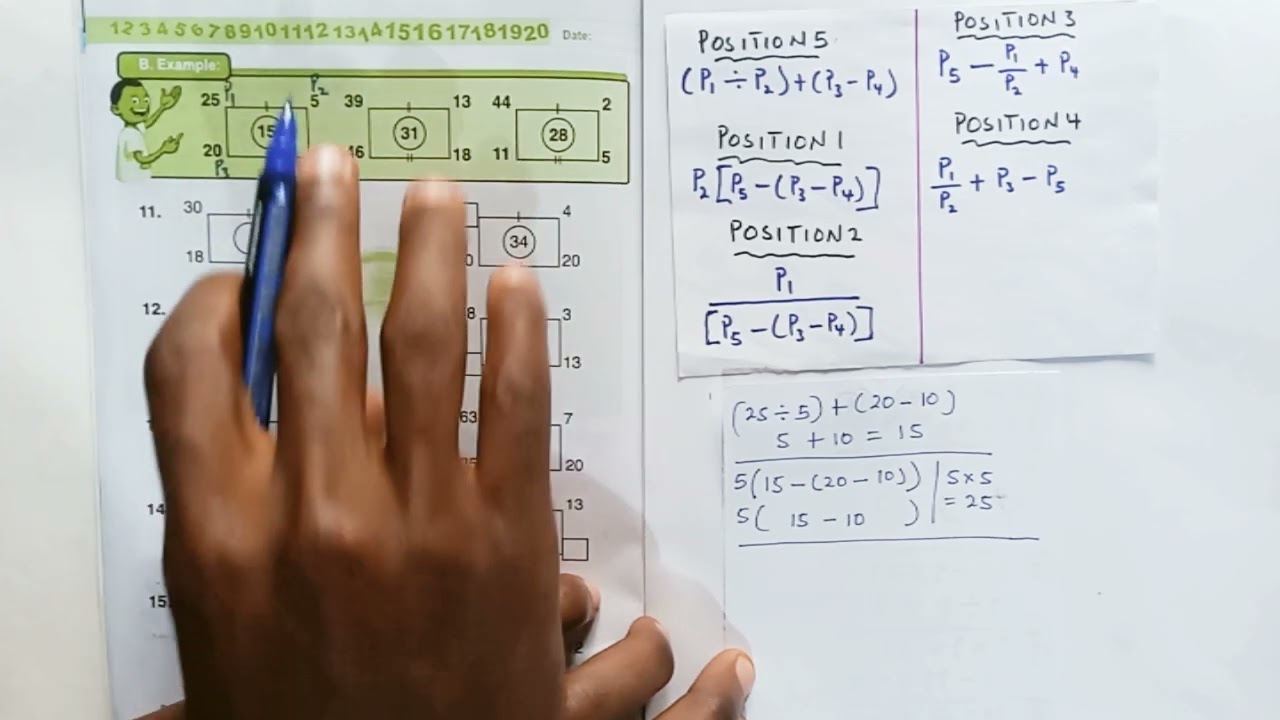 1 2 3 4 5 6 7 8 9 10 11 12 13 14 15 16 17 18 19 20 Date:
B. Example:
P1 P2
25 5 39 13 44 2
15 31 28
20 46 18 11 5
P3
11. 30 4
34
18 0 20
12. 8 3
13
63 7
20
14 13
15.
2
POSITION 5
(P1 ÷ P2) + (P3 – P4)
POSITION 1
P2 [P5 – (P3 – P4)]
POSITION 2
P1
[P5 – (P3 – P4)]
POSITION 3
P5 – P1/P2 + P4
POSITION 4
P1/P2 + P3 – P5
(25 ÷ 5) + (20 – 10)
5 + 10 = 15
5(15 – (20 – 10)) | 5 × 5
5( 15 – 10 ) | = 25